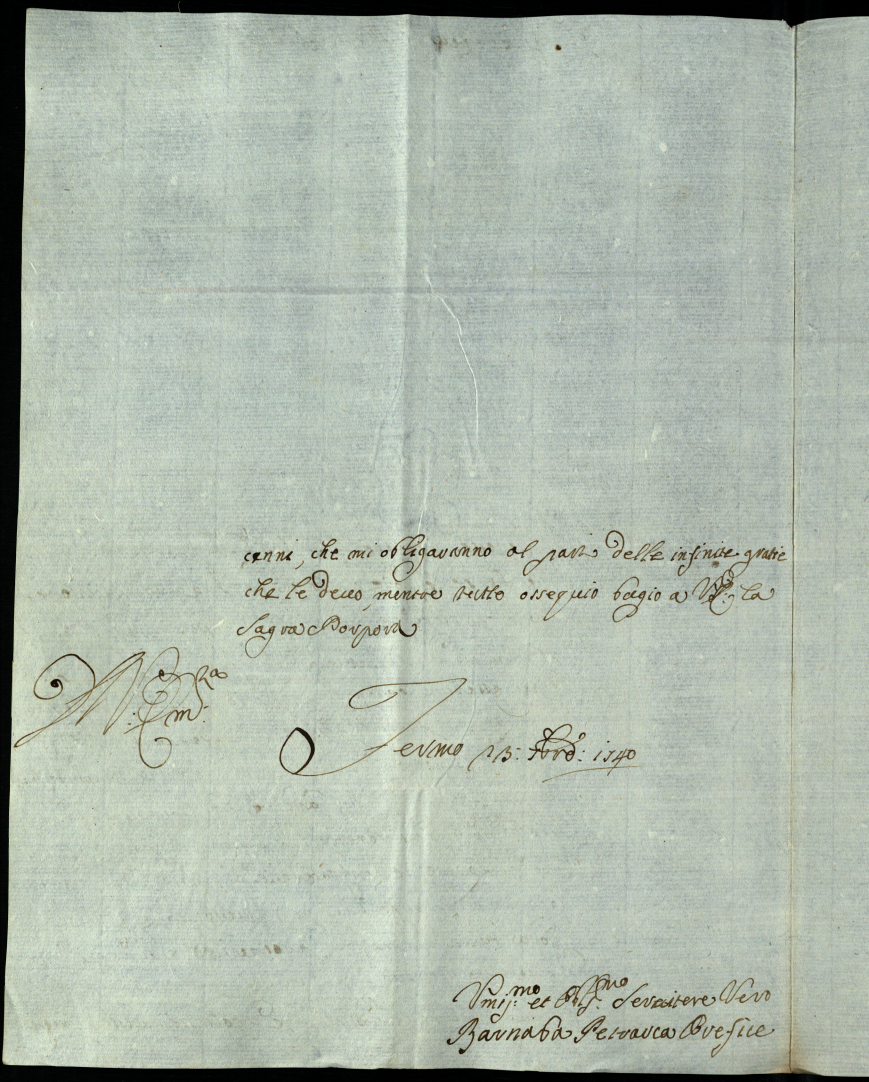 cenni, che mi obligaranno al pari delle infinite gratie
che le devo, mentre tutto ossequio bagio a V. E. la
Sagra Porpora
V: Em:za
Fermo 13: 1740
Umi:mo et Obl:mo Servitore Vero
Barnaba Petrarca Orefice